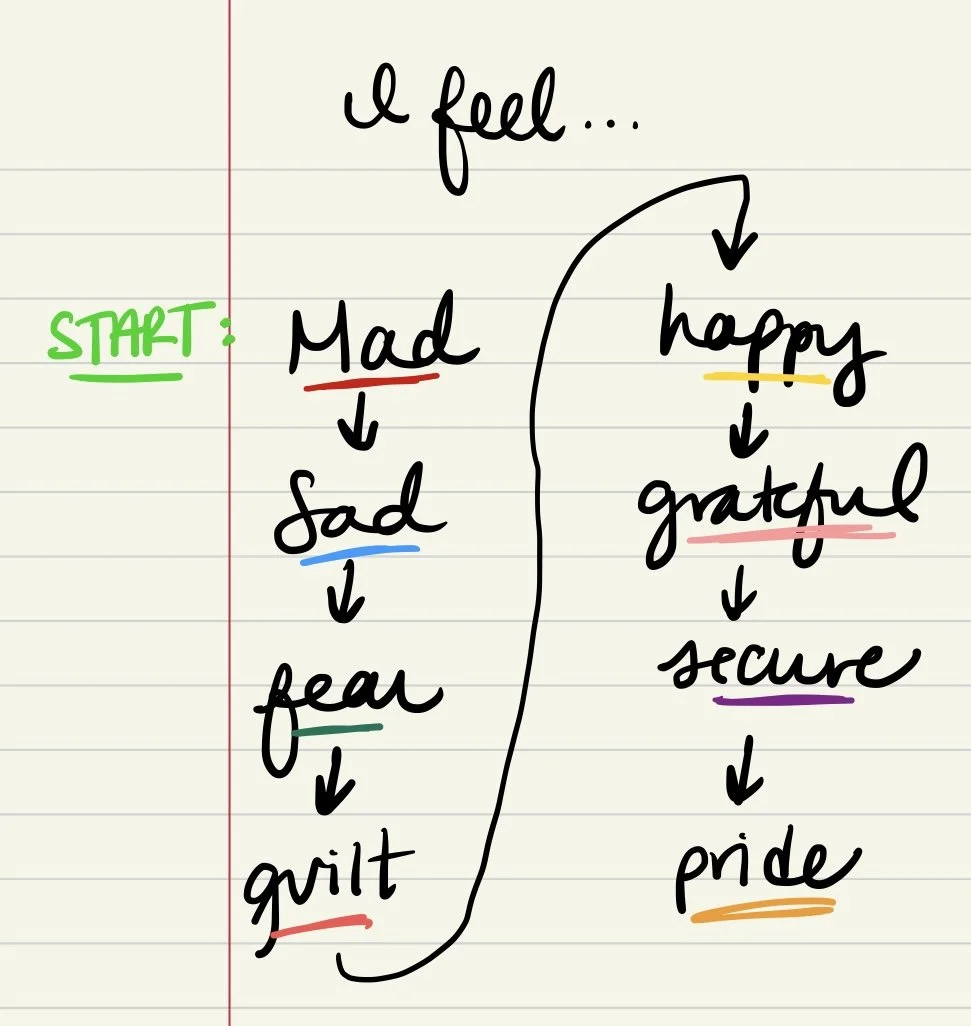 I feel...
START:
Mad
Sad
fear
guilt
happy
grateful
secure
pride